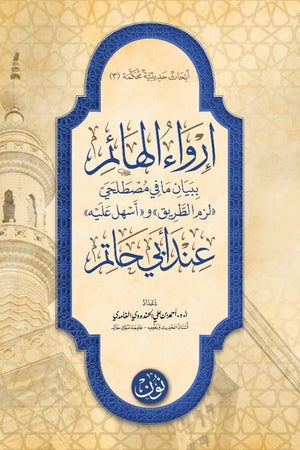 أبحاث حديثية محكمة (٣)
إرواء الهائم
ببيان ما في مصطلحي
«لزم الطريق» و«أسهل عليه»
عند أبي حاتم
إعداد
أ.د. أحمد بن علي الغامدي
أستاذ الحديث وعلومه - جامعة الملك خالد
نون